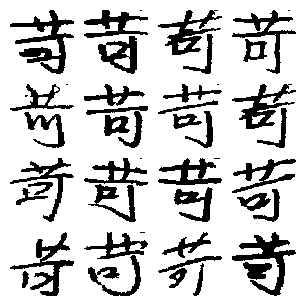 苛苛苛苛
苛苛苛苛
苛苛苛苛
苛苛苛苛